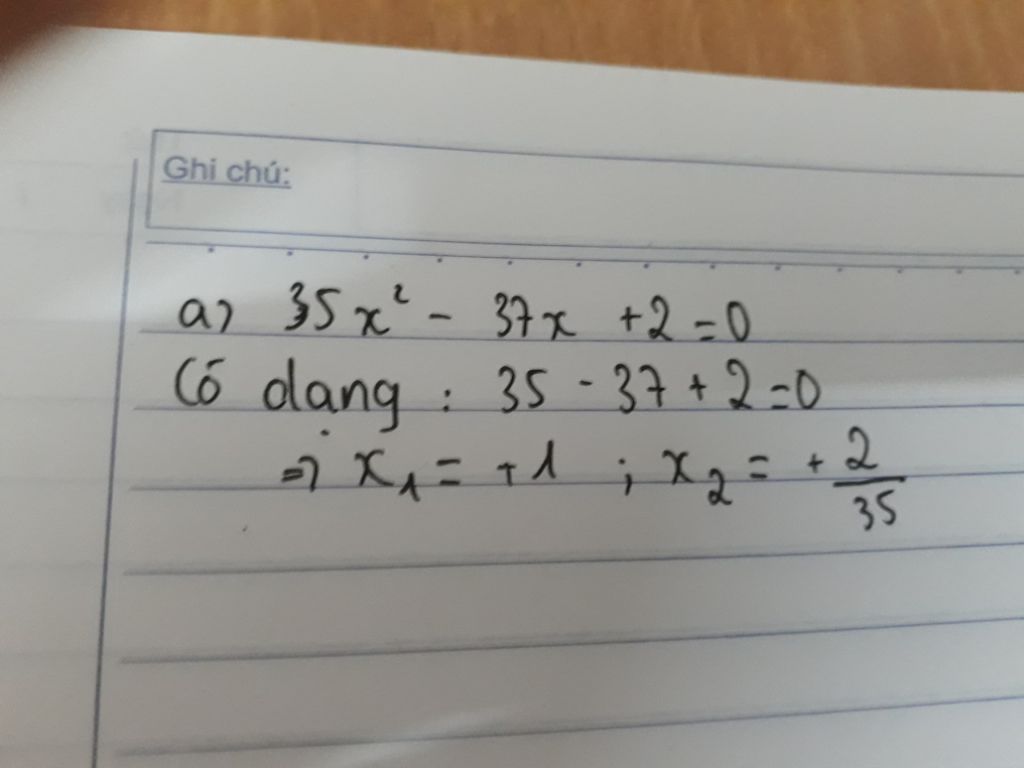 Ghi chú:
a) 35x² - 37x + 2 = 0
Có dạng : 35 - 37 + 2 = 0
⇒ x₁ = +1 ; x₂ = + 2/35